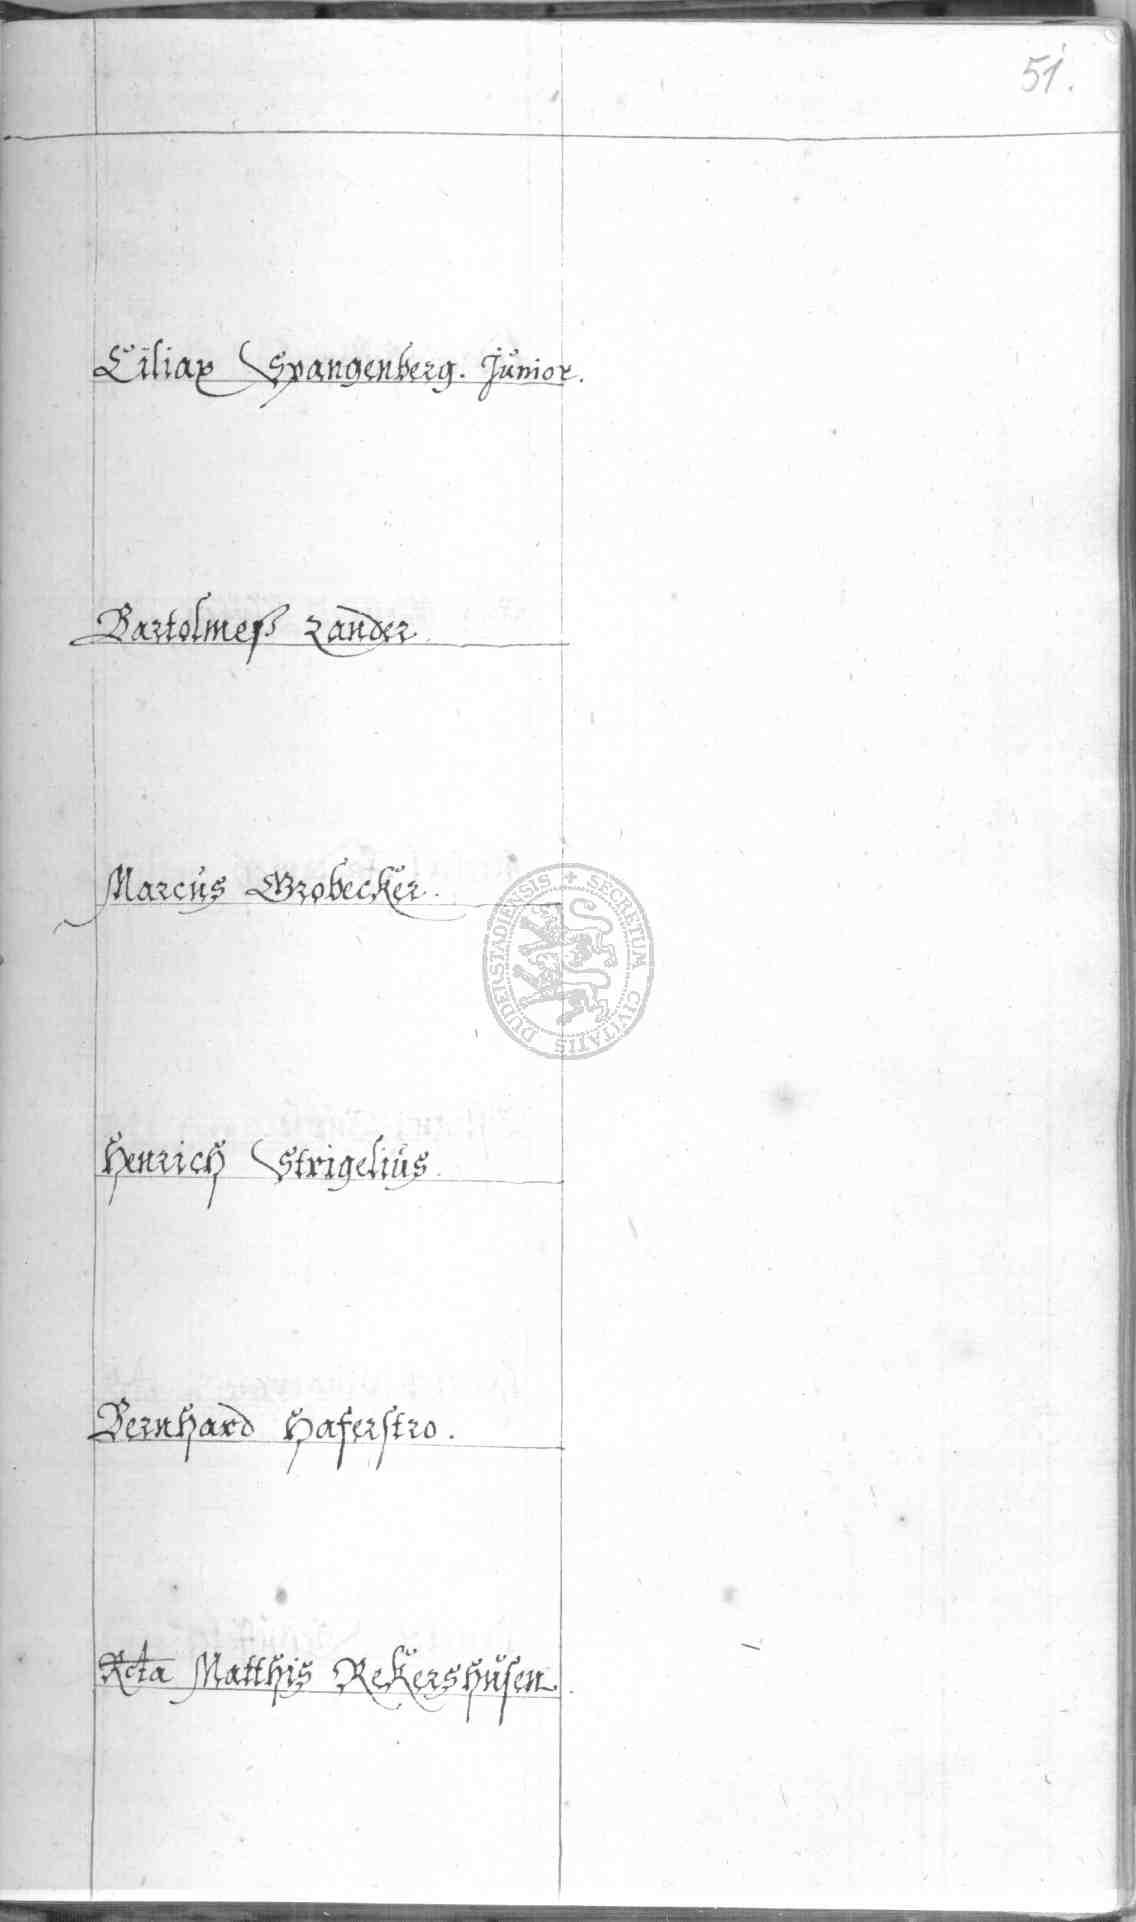 51.
Ciliax Spangenberg. Junior.
Bartolmeß Zander
Marcus Grobecker.
DUDERSTADIENSIS + SECRETUM CIVITATIS
Henrich Strigelius.
Bernhard Haferstro.
Rcta Matthis Rekershusen.